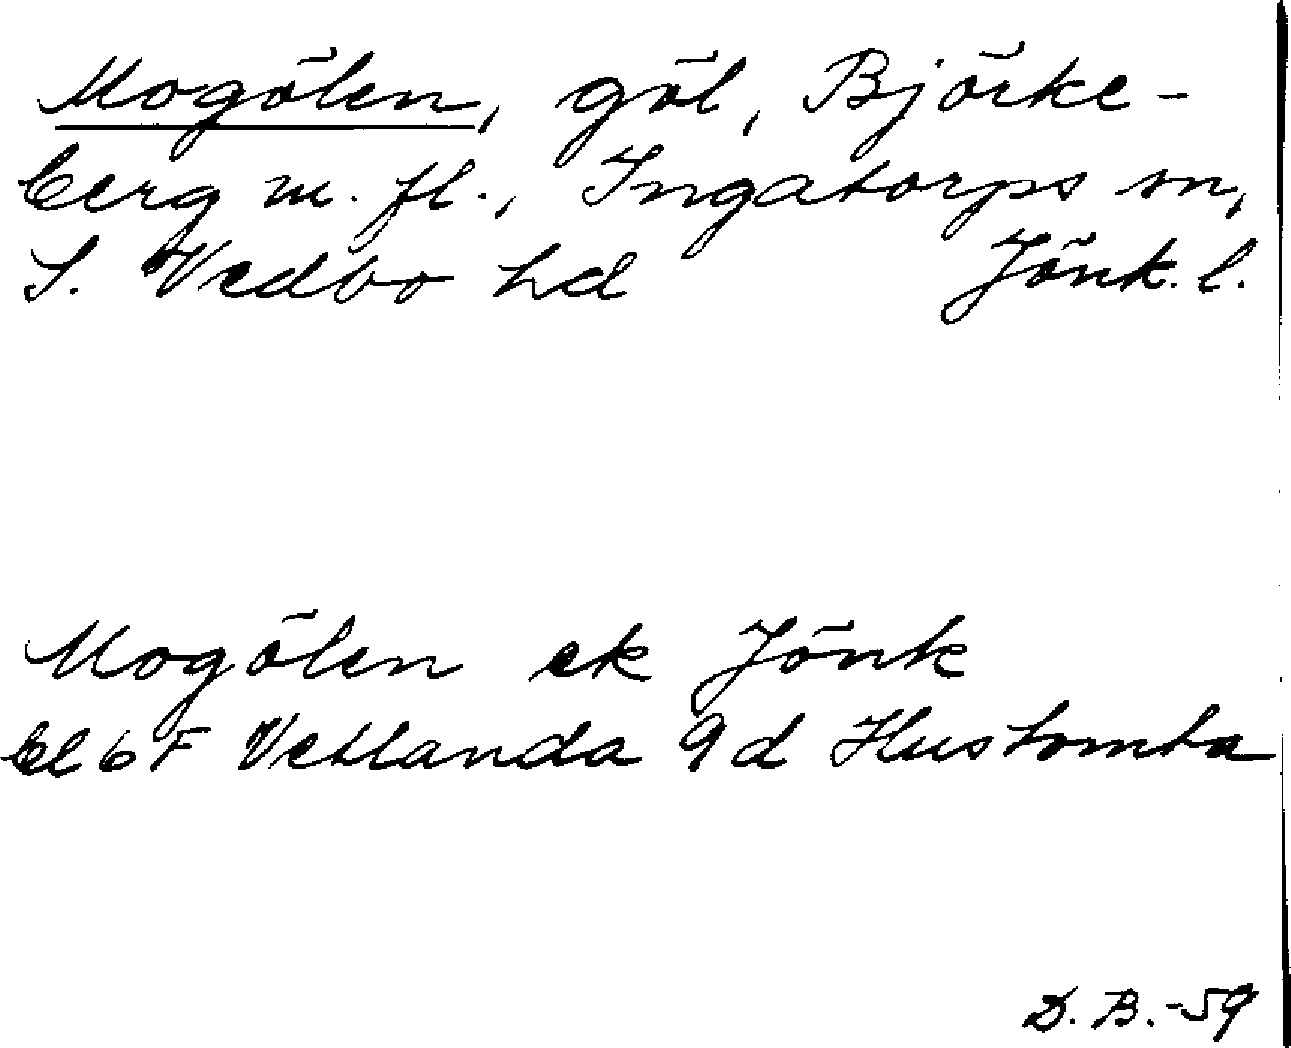 Mogölen, göl, Björke-
berg m. fl., Ingatorps sn,
S. Vedbo hd Jönk. l.
Mogölen ek Jönk
bl 6F Vetlanda 9d Hustomta
D. B. -59